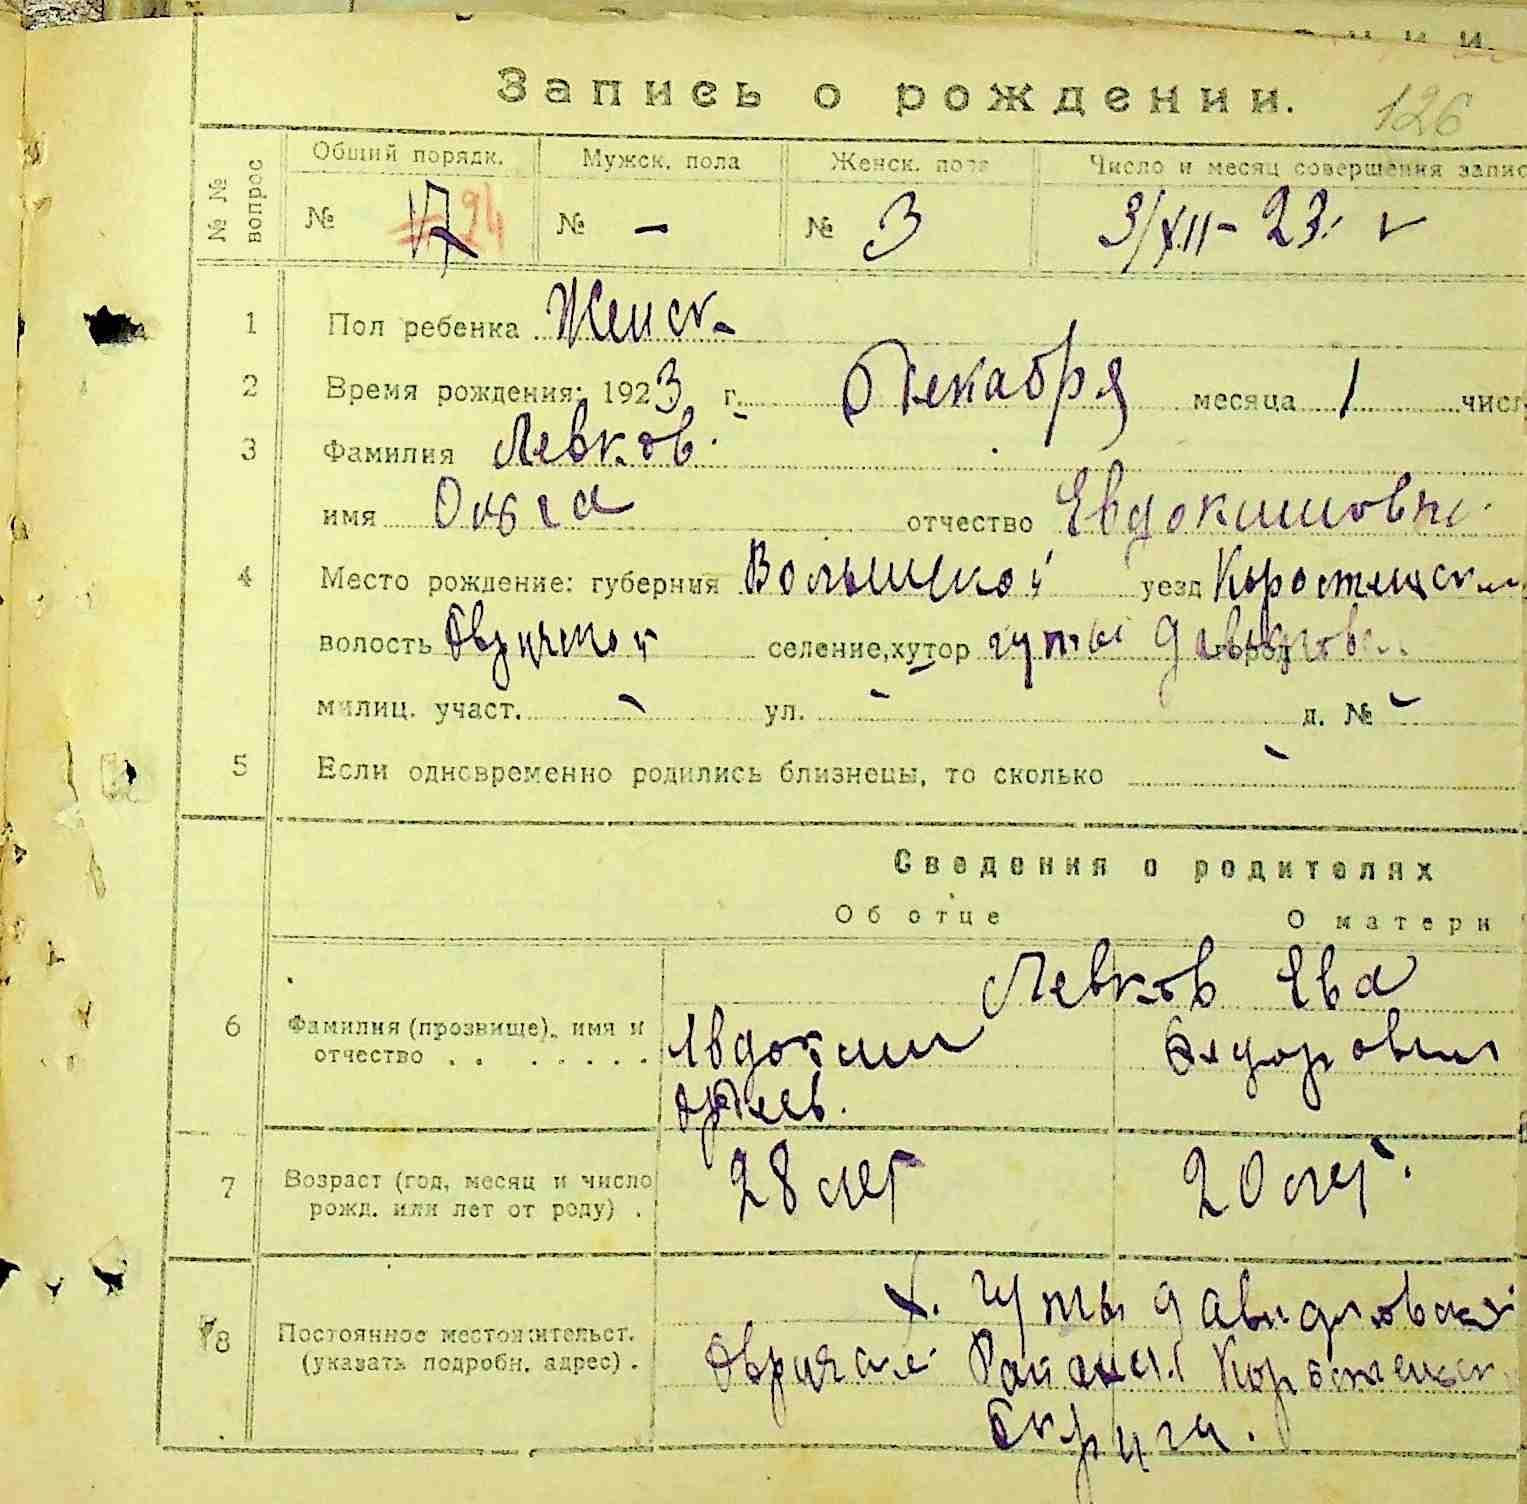 Запись о рождении. 126
№ № вопрос
Общий порядк. Мужск. пола Женск. пола Число и месяц совершения запис
№ 17 24 № — № 3 3/XII – 23 г
1 Пол ребенка Женск.
2 Время рождения: 1923 г. Декабря месяца 1 числ
3 Фамилия Левков.
имя Ольга отчество Евдокимовн
4 Место рождение: губерния Волынской уезд Коростенск
волость Овручской селение, хутор гуты Давидковск
милиц. участ. - ул. - д. № -
5 Если одновременно родились близнецы, то сколько -
Сведения о родителях
Об отце О матери
Левков Ева
6 Фамилия (прозвище), имя и отчество . . . . . . . Евдоким Федоровна
7 Возраст (год, месяц и число рожд. или лет от роду) . 28 лет 20 лет.
х. гуты Давидковской
8 Постоянное местожительст. (указать подробн. адрес) . Овручск. Района Коростенск
Округа.